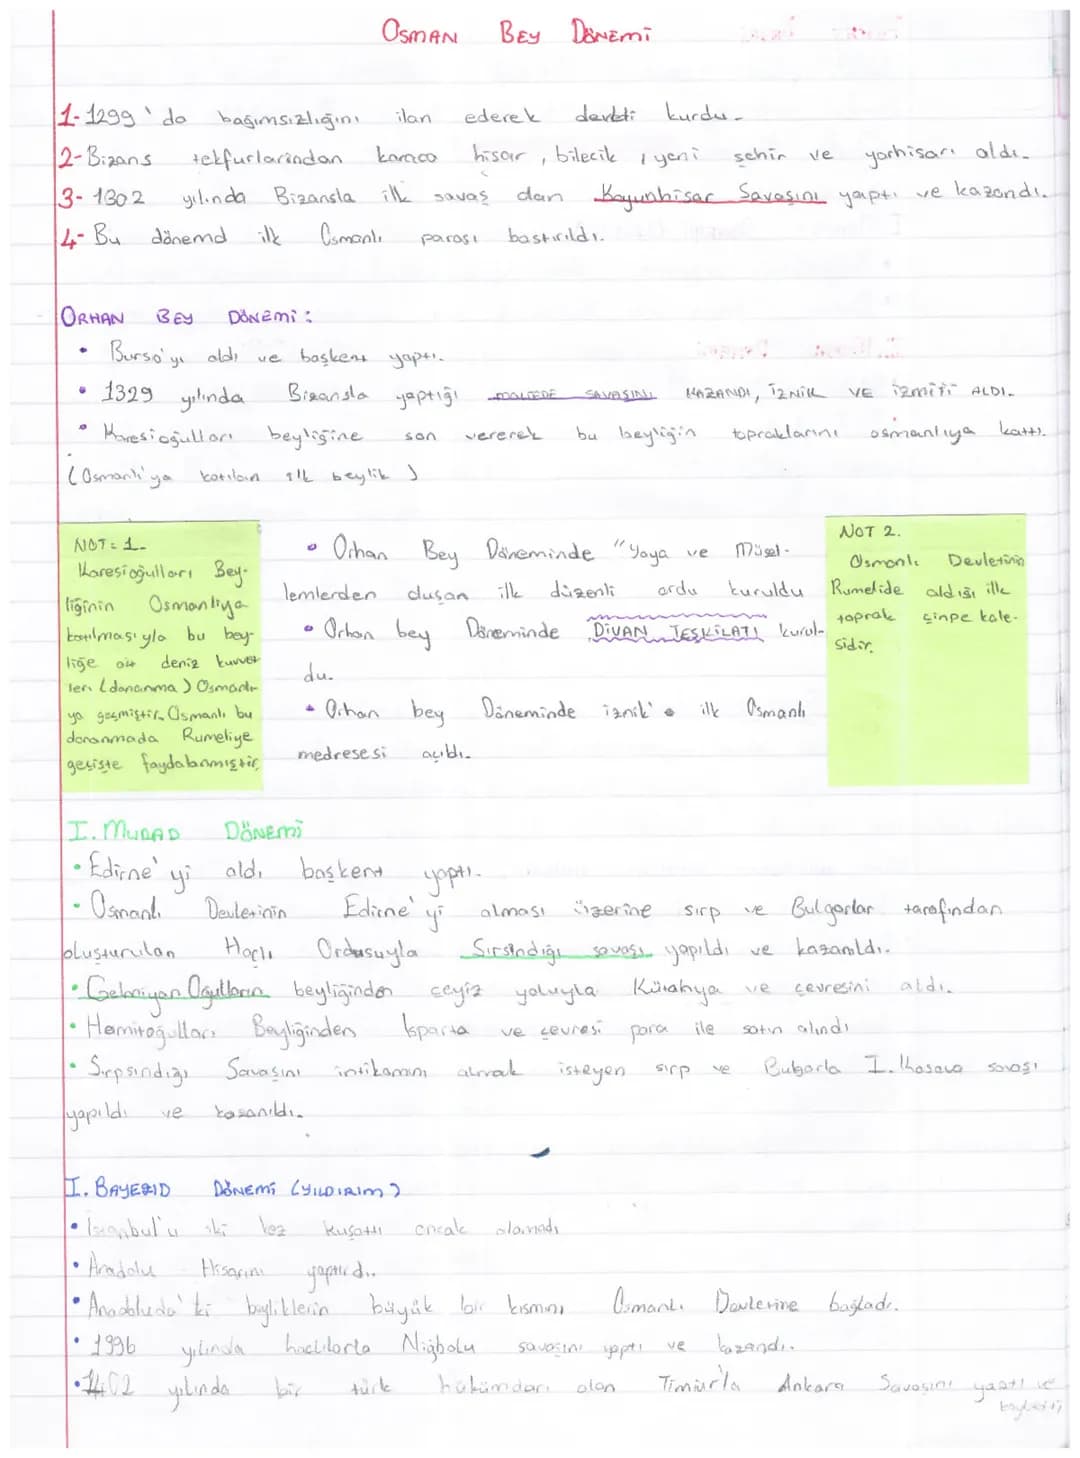 OSMAN BEY DÖNEMİ
1- 1299'da bağımsızlığını ilan ederek devleti kurdu.
2- Bizans tekfurlarından karaca hisar, bilecik, yeni şehir ve yarhisarı aldı.
3- 1302 yılında Bizansla ilk savaş olan Koyunhisar Savaşını yaptı ve kazandı.
4- Bu dönemd ilk Osmanlı parası bastırıldı.
ORHAN BEY DÖNEMİ:
• Bursa'yı aldı ve başkent yaptı.
• 1329 yılında Bizansla yaptığı MALTEPE SAVAŞINI KAZANDI, İZNİK VE İZMİTİ ALDI.
• Karesioğulları beyliğine son vererek bu beyliğin topraklarını osmanlıya kattı.
(Osmanlı'ya katılan ilk beylik)
NOT: 1-
Karesioğulları Bey-
liğinin Osmanlıya
katılmasıyla bu bey-
liğe ait deniz kuvvet
leri (donanma) Osmanlı-
ya geçmiştir. Osmanlı bu
donanmada Rumeliye
geçişte faydalanmıştır.
• Orhan Bey Döneminde "Yaya ve Müsel-
lemlerden oluşan ilk düzenli ordu kuruldu
• Orhan bey Döneminde DİVAN TEŞKİLATI kurul-
du.
• Orhan bey Döneminde iznik'e ilk Osmanlı
medresesi açıldı.
NOT 2.
Osmanlı Devletinin
Rumelide aldığı ilk
toprak çinpe kale-
sidir.
I. MURAD DÖNEMİ
• Edirne'yi aldı başkent yaptı.
• Osmanlı Devletinin Edirne'yi alması üzerine sırp ve Bulgarlar tarafından
oluşturulan Haçlı Ordusuyla Sırsındığı savaşı yapıldı ve kazanıldı.
• Germiyan Oğulların beyliğinden çeyiz yoluyla Kütahya ve çevresini aldı.
• Hamitoğulları Beyliğinden Isparta ve çevresi para ile satın alındı
• Sırpsındığı Savaşını intikamını almak isteyen sırp ve Bulgarla I. Kosova savaşı
yapıldı ve kazanıldı.
I. BAYEZİD DÖNEMİ (YILDIRIM)
• İstanbul'u iki kez kuşattı ancak alamadı
• Anadolu Hisarını yaptırdı.
• Anadoluda'ki beyliklerin büyük bir kısmını Osmanlı Devletine bağladı.
• 1396 yılında haçlılarla Niğbolu savaşını yaptı ve kazandı.
• 1402 yılında bir türk hükümdarı olan Timur'la Ankara Savaşını yaptı ve
kaybetti